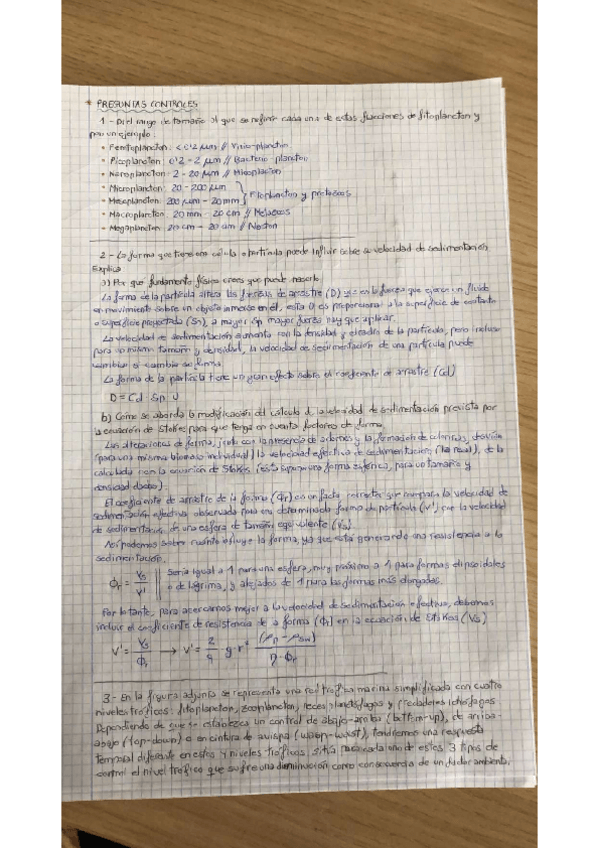 * PREGUNTAS CONTROLES
1 - Di el rango de tamaño al que se refiere cada una de estas fracciones de fitoplancton y
pon un ejemplo.
• Femtoplancton: < 0'2 μm // Virio-plancton
• Picoplancton: 0'2 - 2 μm // Bacterio-plancton
• Nanoplancton: 2 - 20 μm // Micoplancton
• Microplancton: 20 - 200 μm
• Mesoplancton: 200 μm - 20 mm } Fitoplancton y protozoos
• Macroplancton: 20 mm - 20 cm // Medusas
• Megaplancton: 20 cm - 20 cm // Necton
2 - La forma que tiene una célula o partícula puede influir sobre su velocidad de sedimentación.
Explica
a) Por qué fundamento físico crees que puede hacerlo.
La forma de la partícula altera las fuerzas de arrastre (D) que es la fuerza que ejerce un fluido
en movimiento sobre un objeto inmerso en él, esta D es proporcional a la superficie de contacto
o superficie proyectada (Sp), a mayor Sp mayor fuerza hay que aplicar.
La velocidad de sedimentación aumenta con la densidad y el radio de la partícula, pero incluso
para un mismo tamaño y densidad, la velocidad de sedimentación de una partícula puede
cambiar si cambia su forma.
La forma de la partícula tiene un gran efecto sobre el coeficiente de arrastre (Cd)
D = Cd · Sp · U
b) Cómo se aborda la modificación del cálculo de la velocidad de sedimentación prevista por
la ecuación de Stokes para que tenga en cuenta factores de forma.
Las alteraciones de forma, junto con la presencia de adornos y la formación de colonias, desvían
(para una misma biomasa individual) la velocidad efectiva de sedimentación, (la real), de la
calculada con la ecuación de Stokes (esta supone una forma esférica, para un tamaño y
densidad dados).
El coeficiente de arrastre de la forma (Φr) es un factor corrector que compara la velocidad de
sedimentación efectiva observada para una determinada forma de partícula (v') con la velocidad
de sedimentación de una esfera de tamaño equivalente (Vs).
Así podemos saber cuánto influye la forma, ya que está generando una resistencia a la
sedimentación.
Φr = Vs / V' || Sería igual a 1 para una esfera, muy próximo a 1 para formas elipsoidales
o de lágrima, y alejados de 1 para las formas más alargadas.
Por lo tanto, para acercarnos mejor a la velocidad de sedimentación efectiva, debemos
incluir el coeficiente de resistencia de la forma (Φr) en la ecuación de Stokes (Vs)
V' = Vs / Φr → V' = 2/9 · g · r² · (μp - μsw) / η · Φr
3 - En la figura adjunta se representa una red trófica marina simplificada con cuatro
niveles tróficos: fitoplancton, zooplancton, peces planctófagos y predadores ictiófagos.
Dependiendo de que se establezca un control de abajo-arriba (bottom-up), de arriba-
abajo (top-down) o en cintura de avispa (wasp-waist), tendremos una respuesta
temporal diferente en estos 4 niveles tróficos, sitúa para cada uno de estos 3 tipos de
control el nivel trófico que sufre una disminución como consecuencia de un factor ambiental.